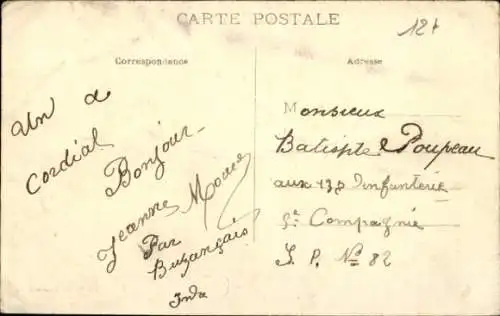 CARTE POSTALE
Correspondance
Un
Cordial
Bonjour
Jeanne
Par
Buzançais
Indre
Adresse
Monsieur
Batispte Poupeau
aux Infanterie
Compagnie
S. P. No 82